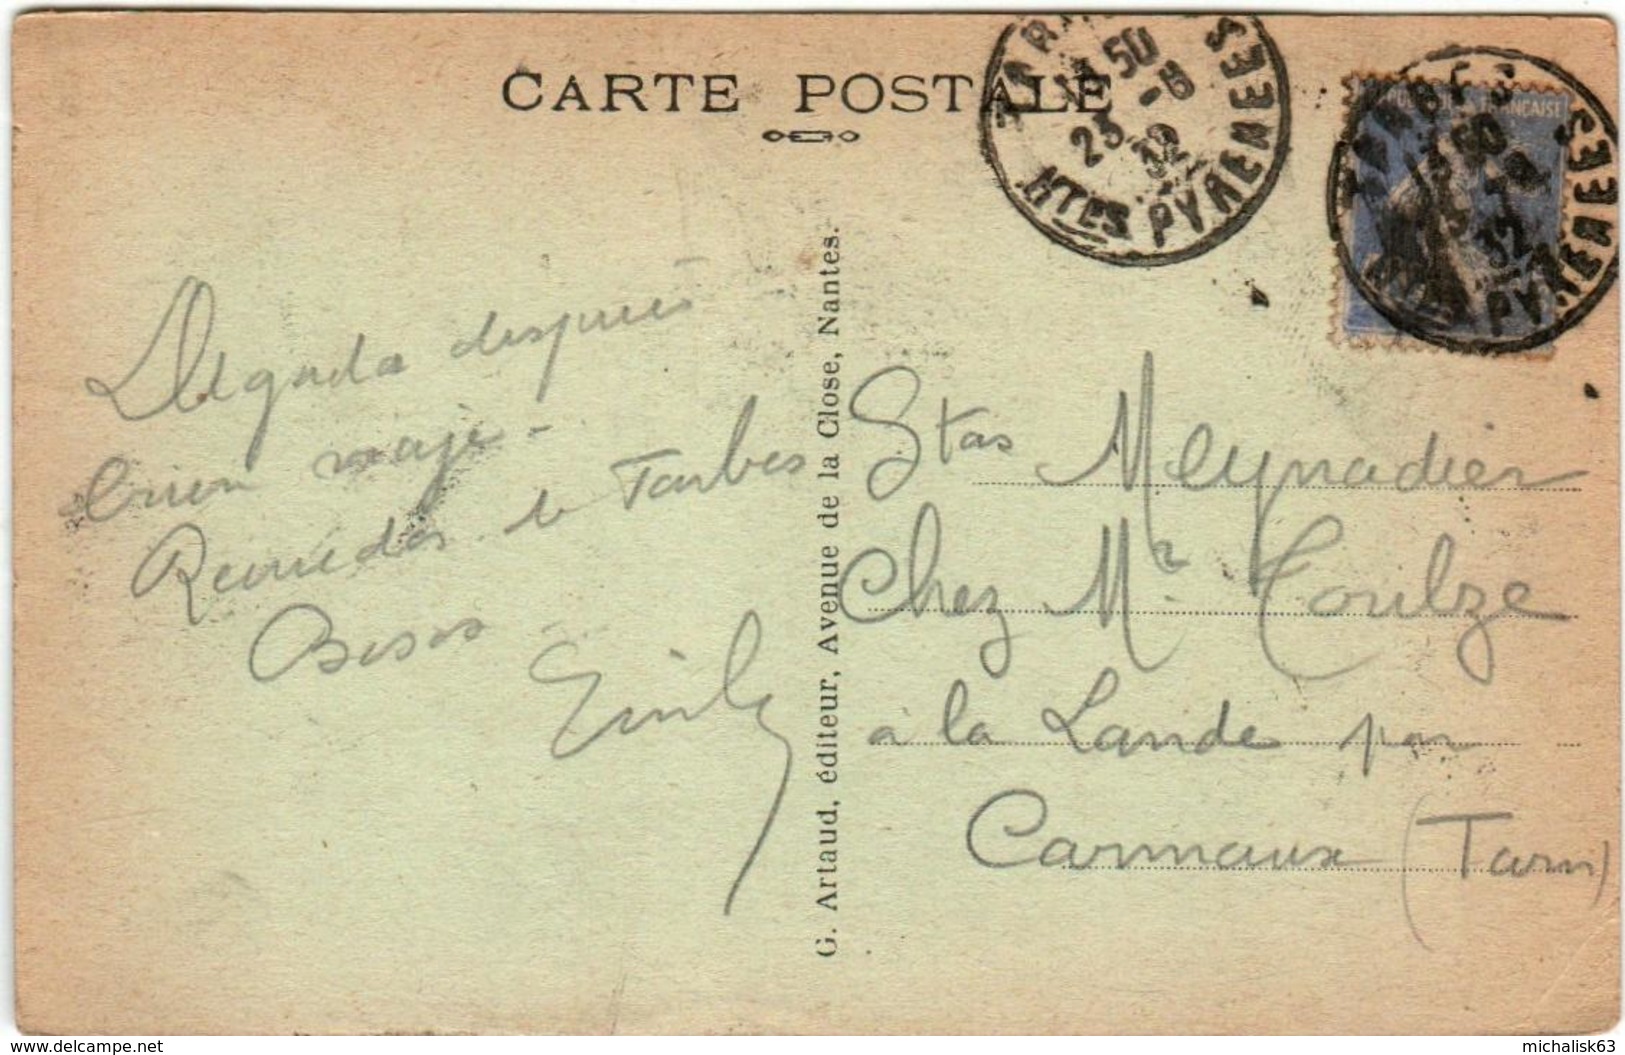 CARTE POSTALE
TARBES
13 50
23 -8
32
HTES PYRENEES
TARBES
13 50
32
HTES PYRENEES
REPUBLIQUE FRANÇAISE
Llegada después
buen viaje -
Recuerdos de Tarbes
Besos -
G. Artaud, éditeur, Avenue de la Close, Nantes.
Stas Meynadier
Chez Mr Toulze
à la Lande par
Carmaux (Tarn)
www.delcampe.net
michalisk63